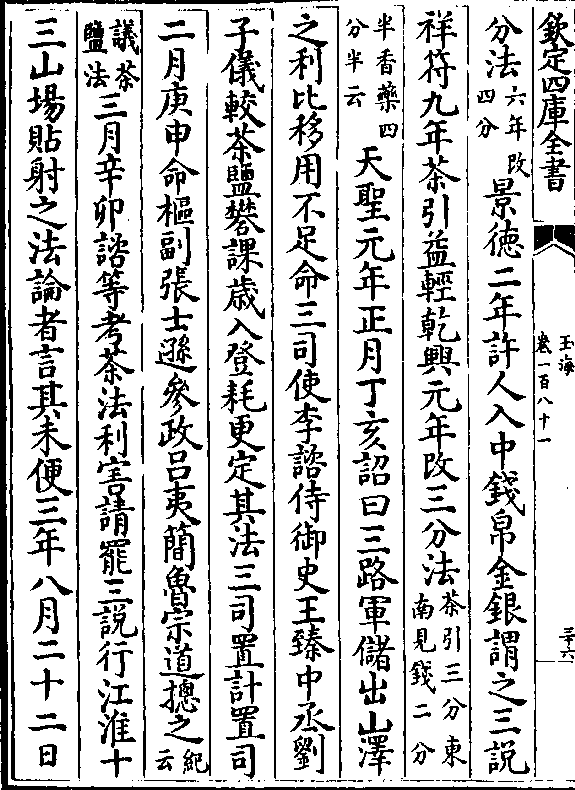 欽定四庫全書
玉海
卷一百八十一
三十六
分法六年改四分景德二年許人入中錢帛金銀謂之三說
祥符九年茶引益輕乾興元年改三分法茶引三分東南見錢二分
半香藥四分半云天聖元年正月丁亥詔曰三路軍儲出山澤
之利比移用不足命三司使李諮侍御史王臻中丞劉
子儀較茶鹽礬課歲入登耗更定其法三司置計置司
二月庚申命樞副張士遜參政呂夷簡魯宗道摠之紀云
議茶鹽法三月辛卯諮等考茶法利害請罷三說行江淮十
三山場貼射之法論者言其未便三年八月二十二日